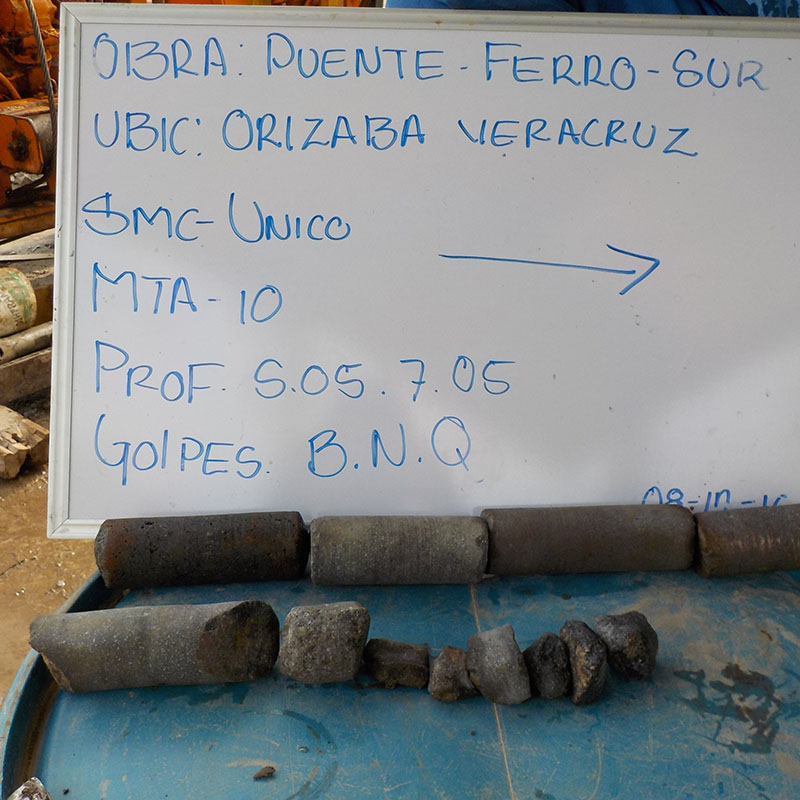 OBRA: PUENTE-FERRO-SUR
UBIC: ORIZABA VERACRUZ
SMC-UNICO
MTA-10
PROF. 5.05.7.05
GOLPES. B.N.Q